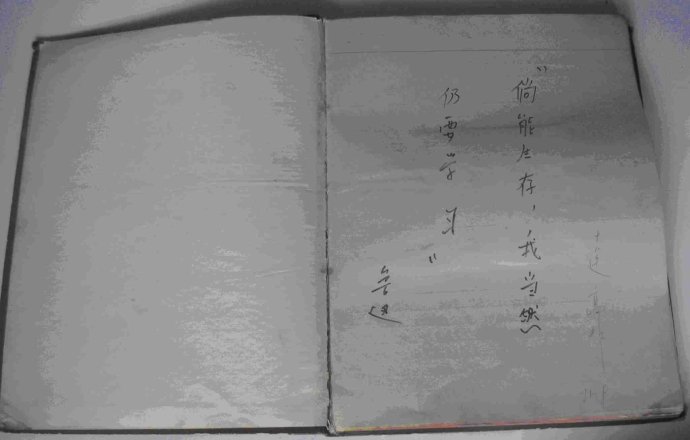 “倘能生存，我当然
仍要学习”
鲁迅